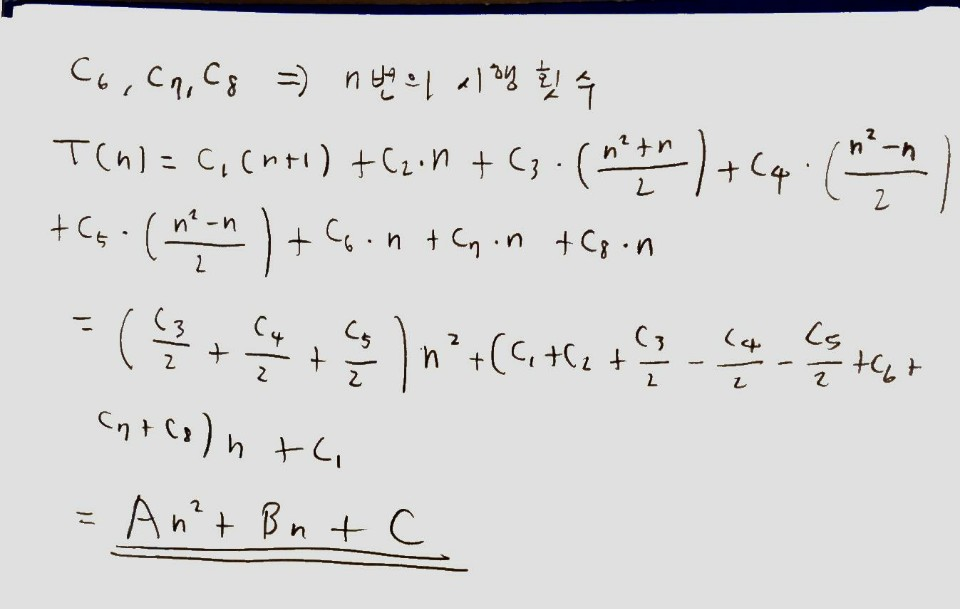 C₆, C₇, C₈ ⇒ n번의 시행 횟수
T(n) = C₁(n+1) + C₂·n + C₃·((n²+n)/2) + C₄·((n²-n)/2)
+ C₅·((n²-n)/2) + C₆·n + C₇·n + C₈·n
= (C₃/2 + C₄/2 + C₅/2)n² + (C₁+C₂ + C₃/2 - C₄/2 - C₅/2 + C₆ +
C₇ + C₈)n + C₁
= An² + Bn + C